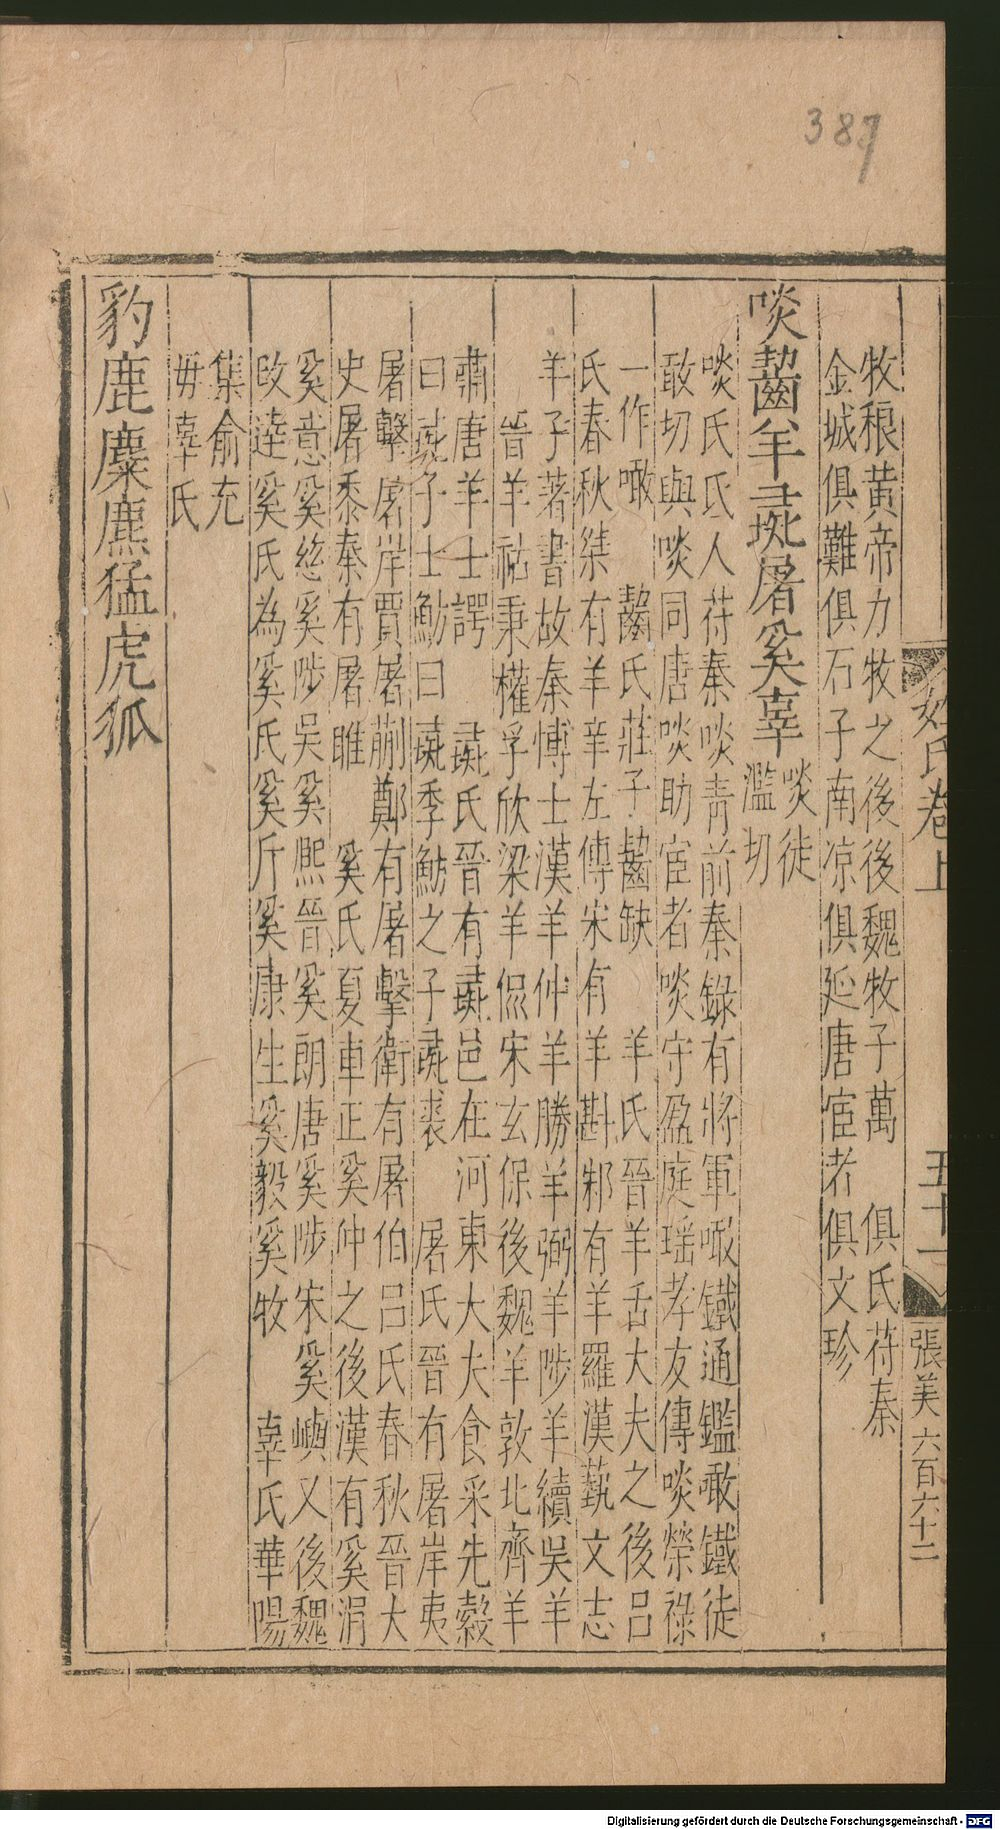 387
姓氏卷上
五十一
張美 六百六十二
牧稂黄帝力牧之後後魏牧子萬 俱氏苻秦
金城俱難俱石子南凉俱延唐宦者俱文珍
啖齧羊彘屠奚辜
啖徒
濫切
啖氏氐人苻秦啖青前秦錄有將軍噉鐵通鑑噉鐵徒
敢切與啖同唐啖助宦者啖守盈庭瑶孝友傳啖榮祿
一作噉 齧氏莊子齧缺 羊氏晉羊舌大夫之後呂
氏春秋桀有羊辛左傳宋有羊斟邾有羊羅漢藝文志
羊子著書故秦博士漢羊仲羊勝羊弼羊陟羊續吳羊
晉羊祜秉權孚欣梁羊侃宋玄保後魏羊敦北齊羊
肅唐羊士諤 彘氏晉有彘邑在河東大夫食采先縠
曰彘子士魴曰彘季魴之子彘裘 屠氏晉有屠岸夷
屠擊屠岸賈屠蒯鄭有屠擊衛有屠伯呂氏春秋晉大
史屠黍秦有屠睢 奚氏夏車正奚仲之後漢有奚涓
奚意奚慈奚陟吳奚熙晉奚朗唐奚陟宋奚嶼又後魏
改達奚氏為奚氏奚斤奚康生奚毅奚牧 辜氏華陽
集俞充
毋辜氏
豹鹿麋麃猛虎狐
Digitalisierung gefördert durch die Deutsche Forschungsgemeinschaft - DFG